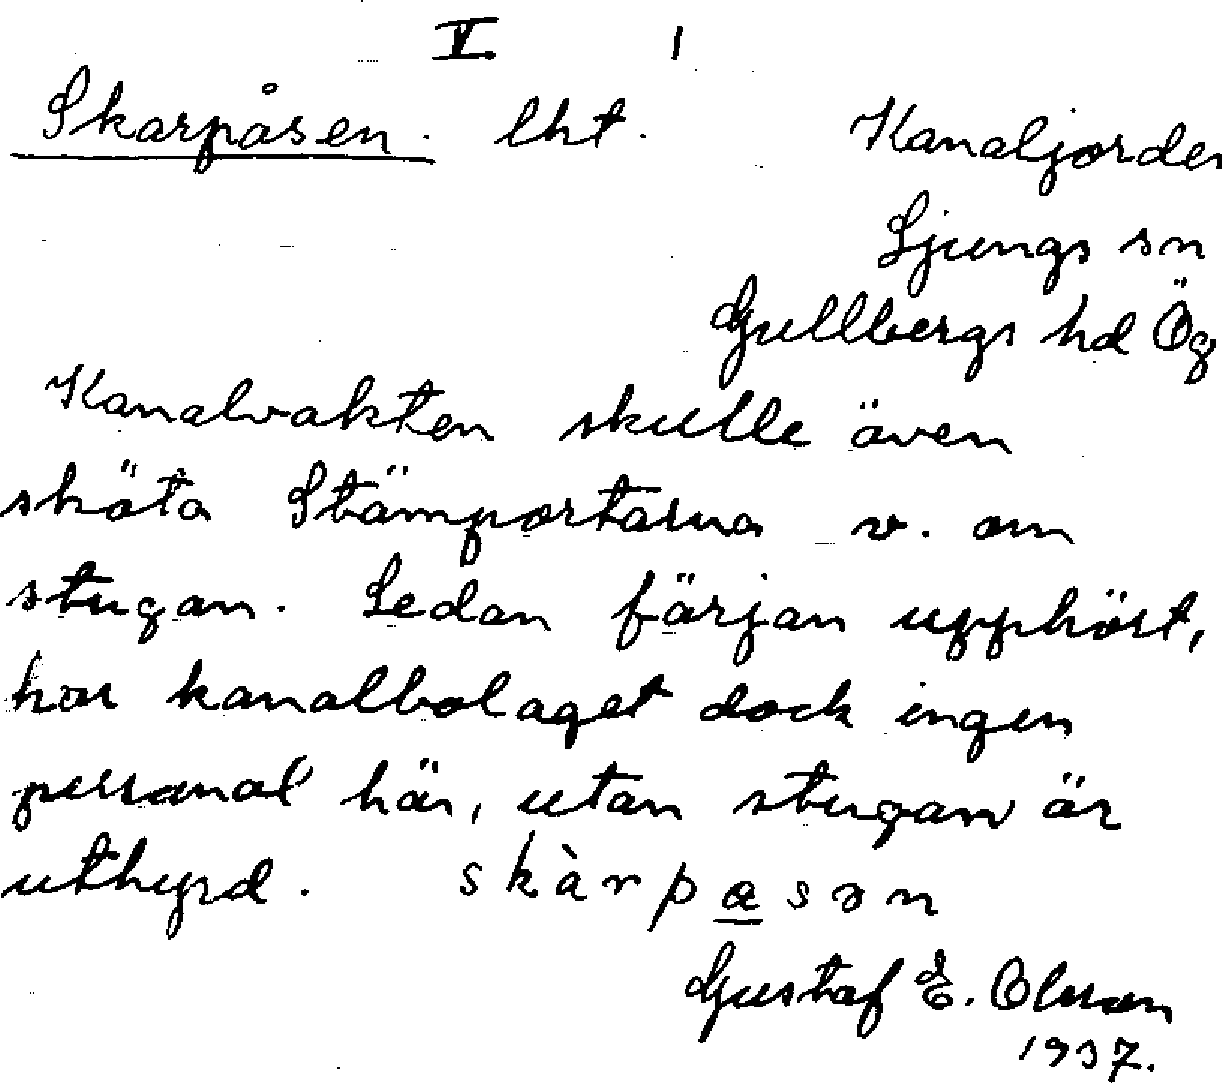 V. 1
Skarpåsen. lht. Kanaljorden
Ljungs sn
Gullbergs hd Ög
Kanalvakten skulle även
sköta Stämportarna v. om
stugan. Sedan färjan upphört,
har kanalbolaget dock ingen
personal här, utan stugan är
uthyrd. skàrpasən
Gustaf E. Olsson
1937.